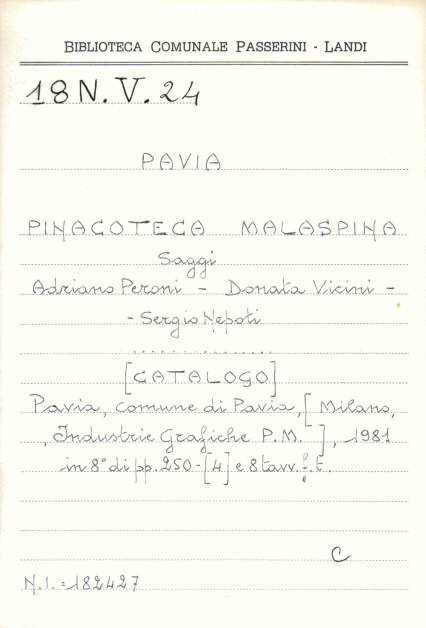 BIBLIOTECA COMUNALE PASSERINI - LANDI
18 N. V. 24
PAVIA
PINACOTECA MALASPINA
Saggi
Adriano Peroni - Donata Vicini -
- Sergio Nepoti
....................
[CATALOGO]
Pavia, comune di Pavia, [Milano,
, Industrie Grafiche P.M. ], 1981
in 8° di pp. 250-[4] e 8 tavv. f. t.
C
N.I. = 182427